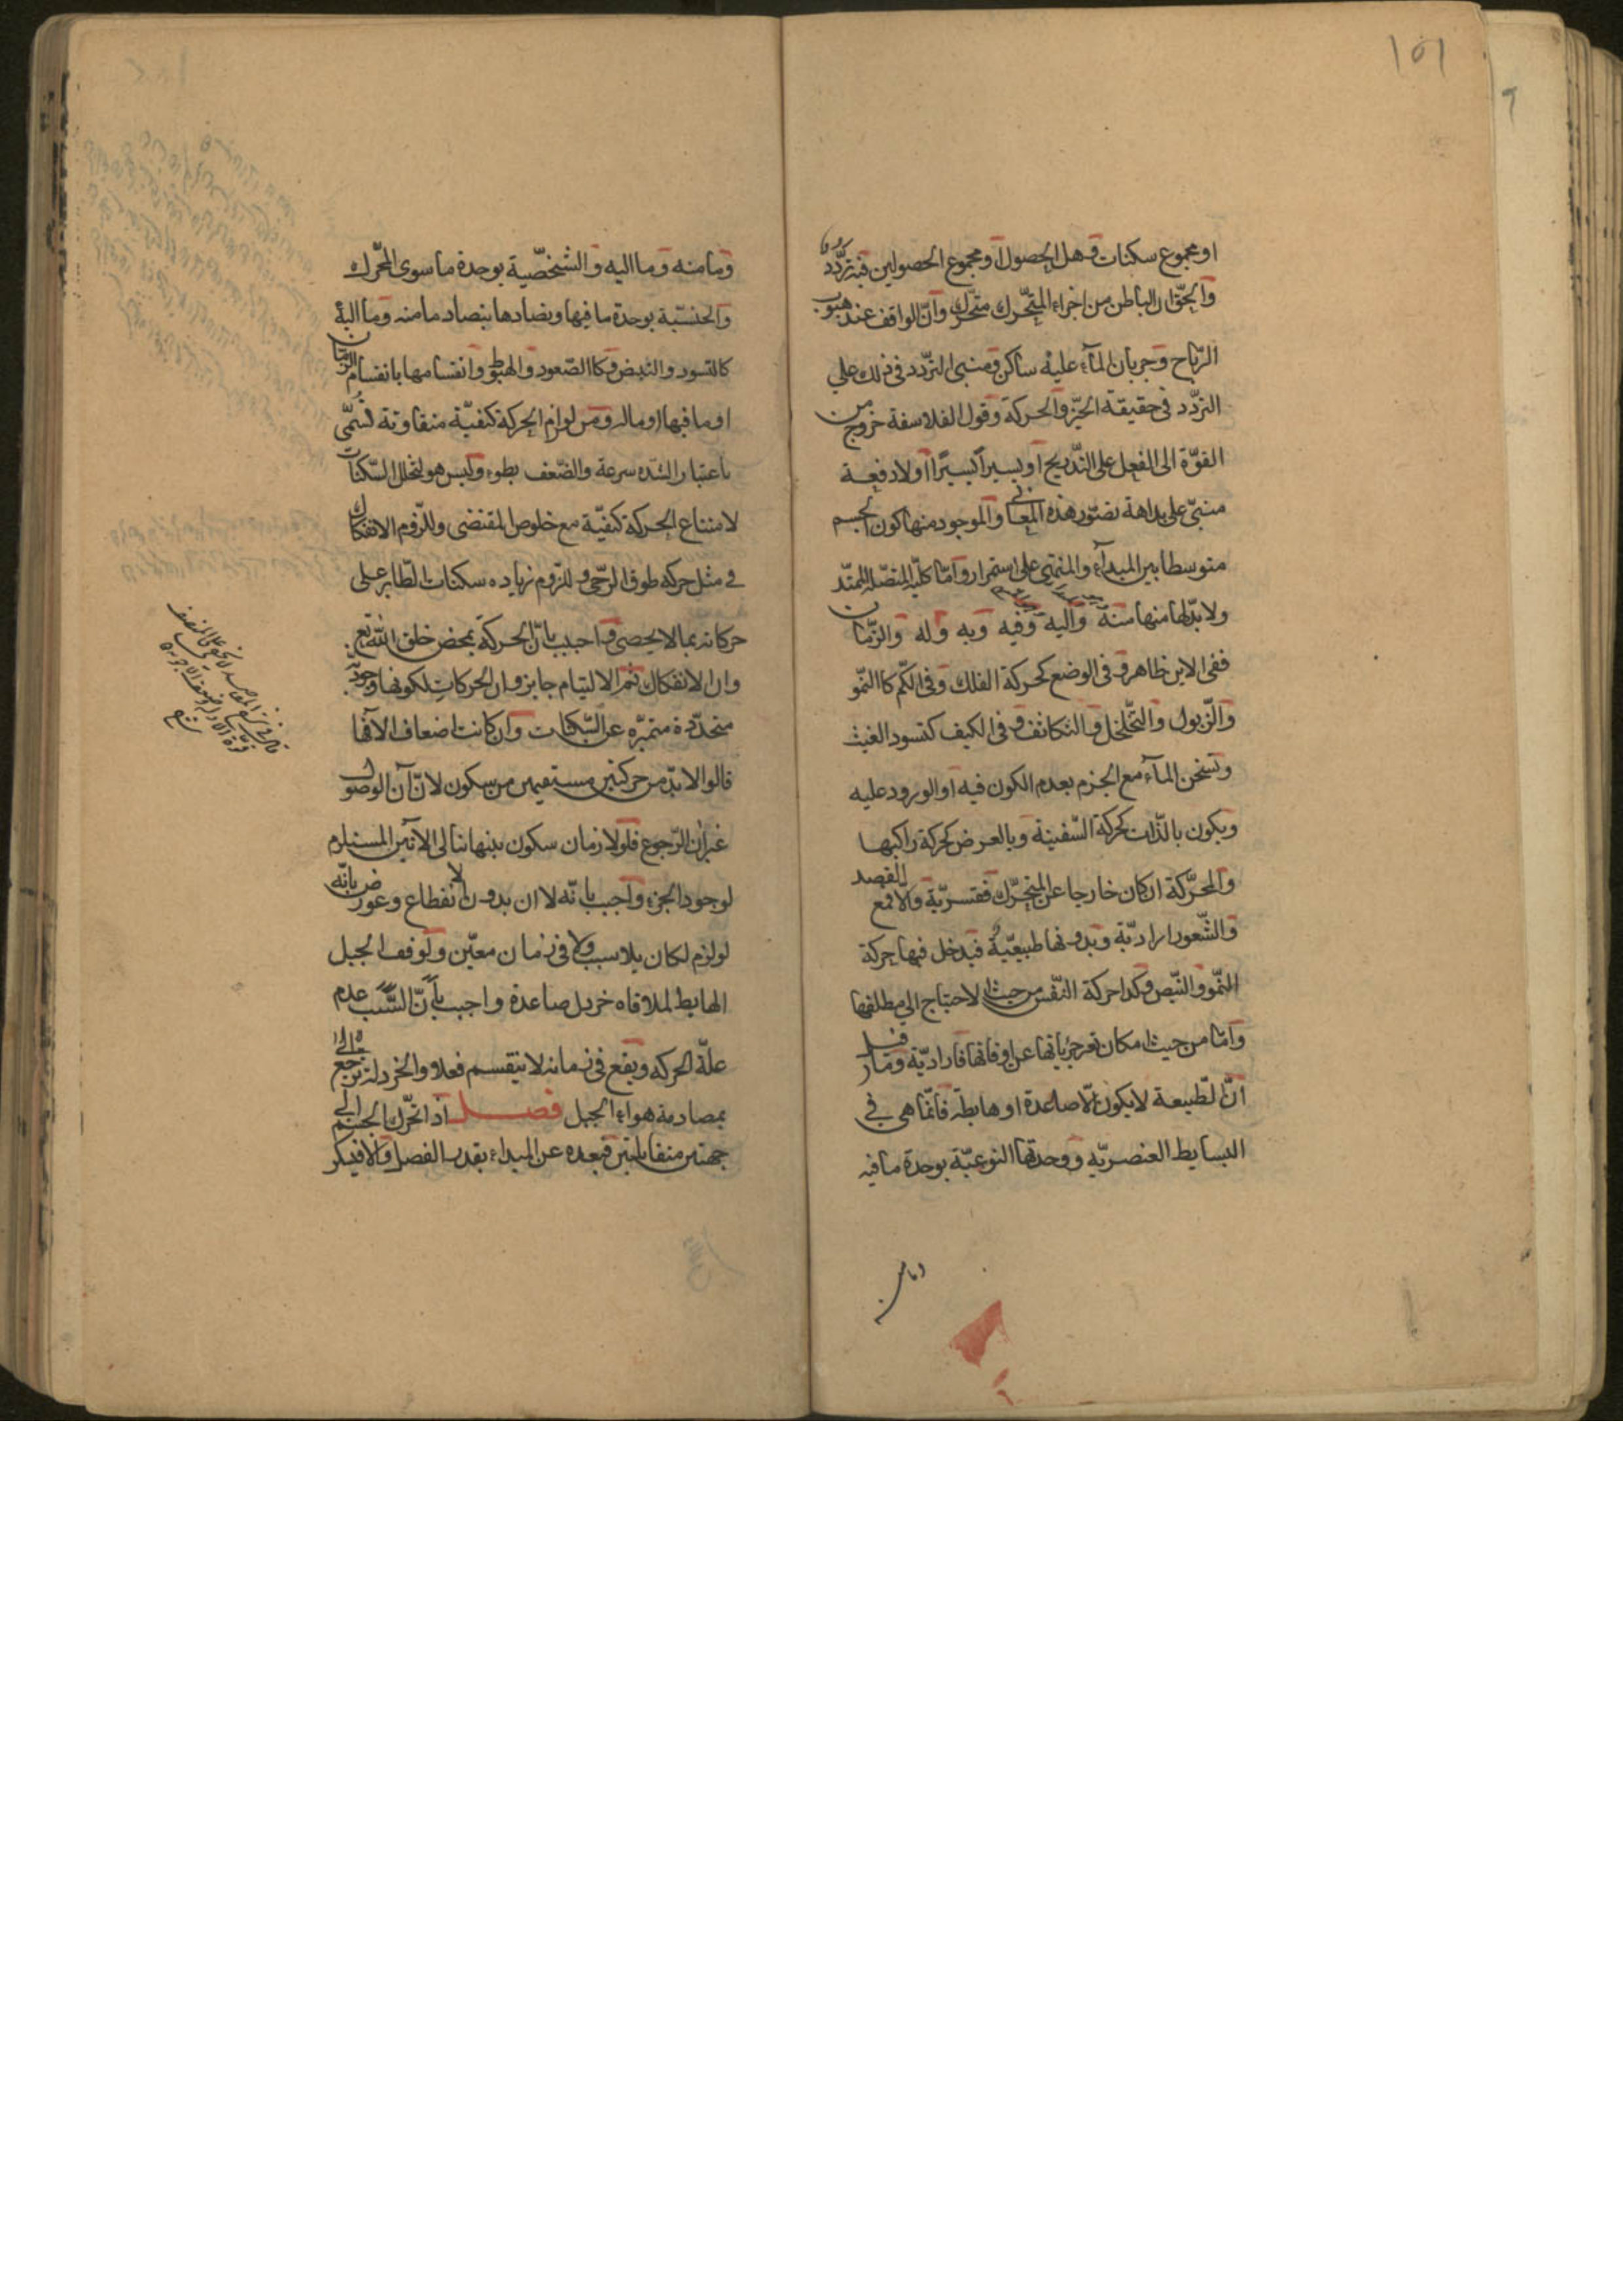 ١٥١
او مجموع سكنات وهل الحصول او مجموع الحصولين فيه تردّد
والحقّ ان الباطن من اجزاء المتحرّك متحرّك وانّ الواقف عند هبوب
الرّياح وجريان المآء عليه ساكن ومنبى التردّد فى ذلك على
التردّد فى حقيقة الحيّز والحركة وقول الفلاسفة خروج من
القوّة الى الفعل على التّدريج او يسيرا يسيرًا او لا دفعة
مبنىّ على بداهة تصوّر هذه المعانى والموجود منها كون الجسم
متوسطا بين المبدآء والمنتهى على استمرار وامّا كليّة المتصّلة الممتدّ
ولا بدّ لها منها منه واليه وفيه وبه وله والزّمان
ففى الاين ظاهر وفى الوضع كحركة الفلك وفى الكم كالنّمو
والذّبول والتّخلخل والتكاثف وفى الكيف كتسود العنب
وتسخن المآء مع الجزم بعدم الكون فيه او الورود عليه
ويكون بالذّات كحركة السّفينة وبالعرض كحركة راكبها
والمحرّكة ان كان خارجا عن المتحرّك فقسريّة والا فمع القصد
والشّعور اراديّة وبدونها طبيعيّة فيدخل فيها حركة
النّمو والنّبض وكذا حركة النّفس من حيث الاحتياج الى مطلقها
وامّا من حيث امكان تغير جزياتها عن اوقاتها فاراديّة وما قيل
انّ الطّبيعة لا يكون الّا صاعدة او هابطة فانّما هى فى
البسايط العنصريّه ووحدتها النوعيّة بوحدة ما فيه
وما منه
وما منه وما اليه والشخصّية بوحدة ما سوى المحّرك
والجنسّية بوحدة ما فيها وتضادها بتضاد ما منه وما اليه
كالتسود والتبيض وكالصّعود والهبوط وانقسامها بانقسام الزمان
او ما فيها او ماله ومن لوازم الحركة كيفيّة متفاوتة تسمّى
باعتبار الشّده سرعة والضّعف بطوء وليس هو لتخلل السّكنات
لامتناع الحركة كيفيّة مع خلوص المقتضى وللزوم الانفكاك
فى مثل حركه طوق الرّحى وللزوم زياده سكنات الطّاير على
حركاته بما لا يحصى واجيب بانّ الحركة بمحض خلق الله تع
وان الانفكاك ثم الالتيام جايز وان الحركات لكونها وجوديّة
متجدّدة متميّزه عن السّكنات وان كانت اضعاف الآفها
قالوا لا بدّ من حركتين مستقيمين من سكون لانّ آن الوصول
غير آن الرّجوع فلو لا زمان سكون بينهما تتالى الآنين المستلزم
لوجود الجزء واجيب بانّه لا آن بدون الانقطاع وعورض بانّه
لو لزم لكان بلا سبب ولا فى زمان معيّن ولوقف الجبل
الهابط لملاقاه خردل صاعدة واجيب بانّ السّبب عدم
علّة الحركه ويقع فى زمان لا ينقسم فعلا والخردلة ترجع
بمصادمة هواء الجبل فصل اذا تحرّك الجسم الى
جهتين متقابلتين فبعده عن المبداء بقدر الفصل والا فيكر